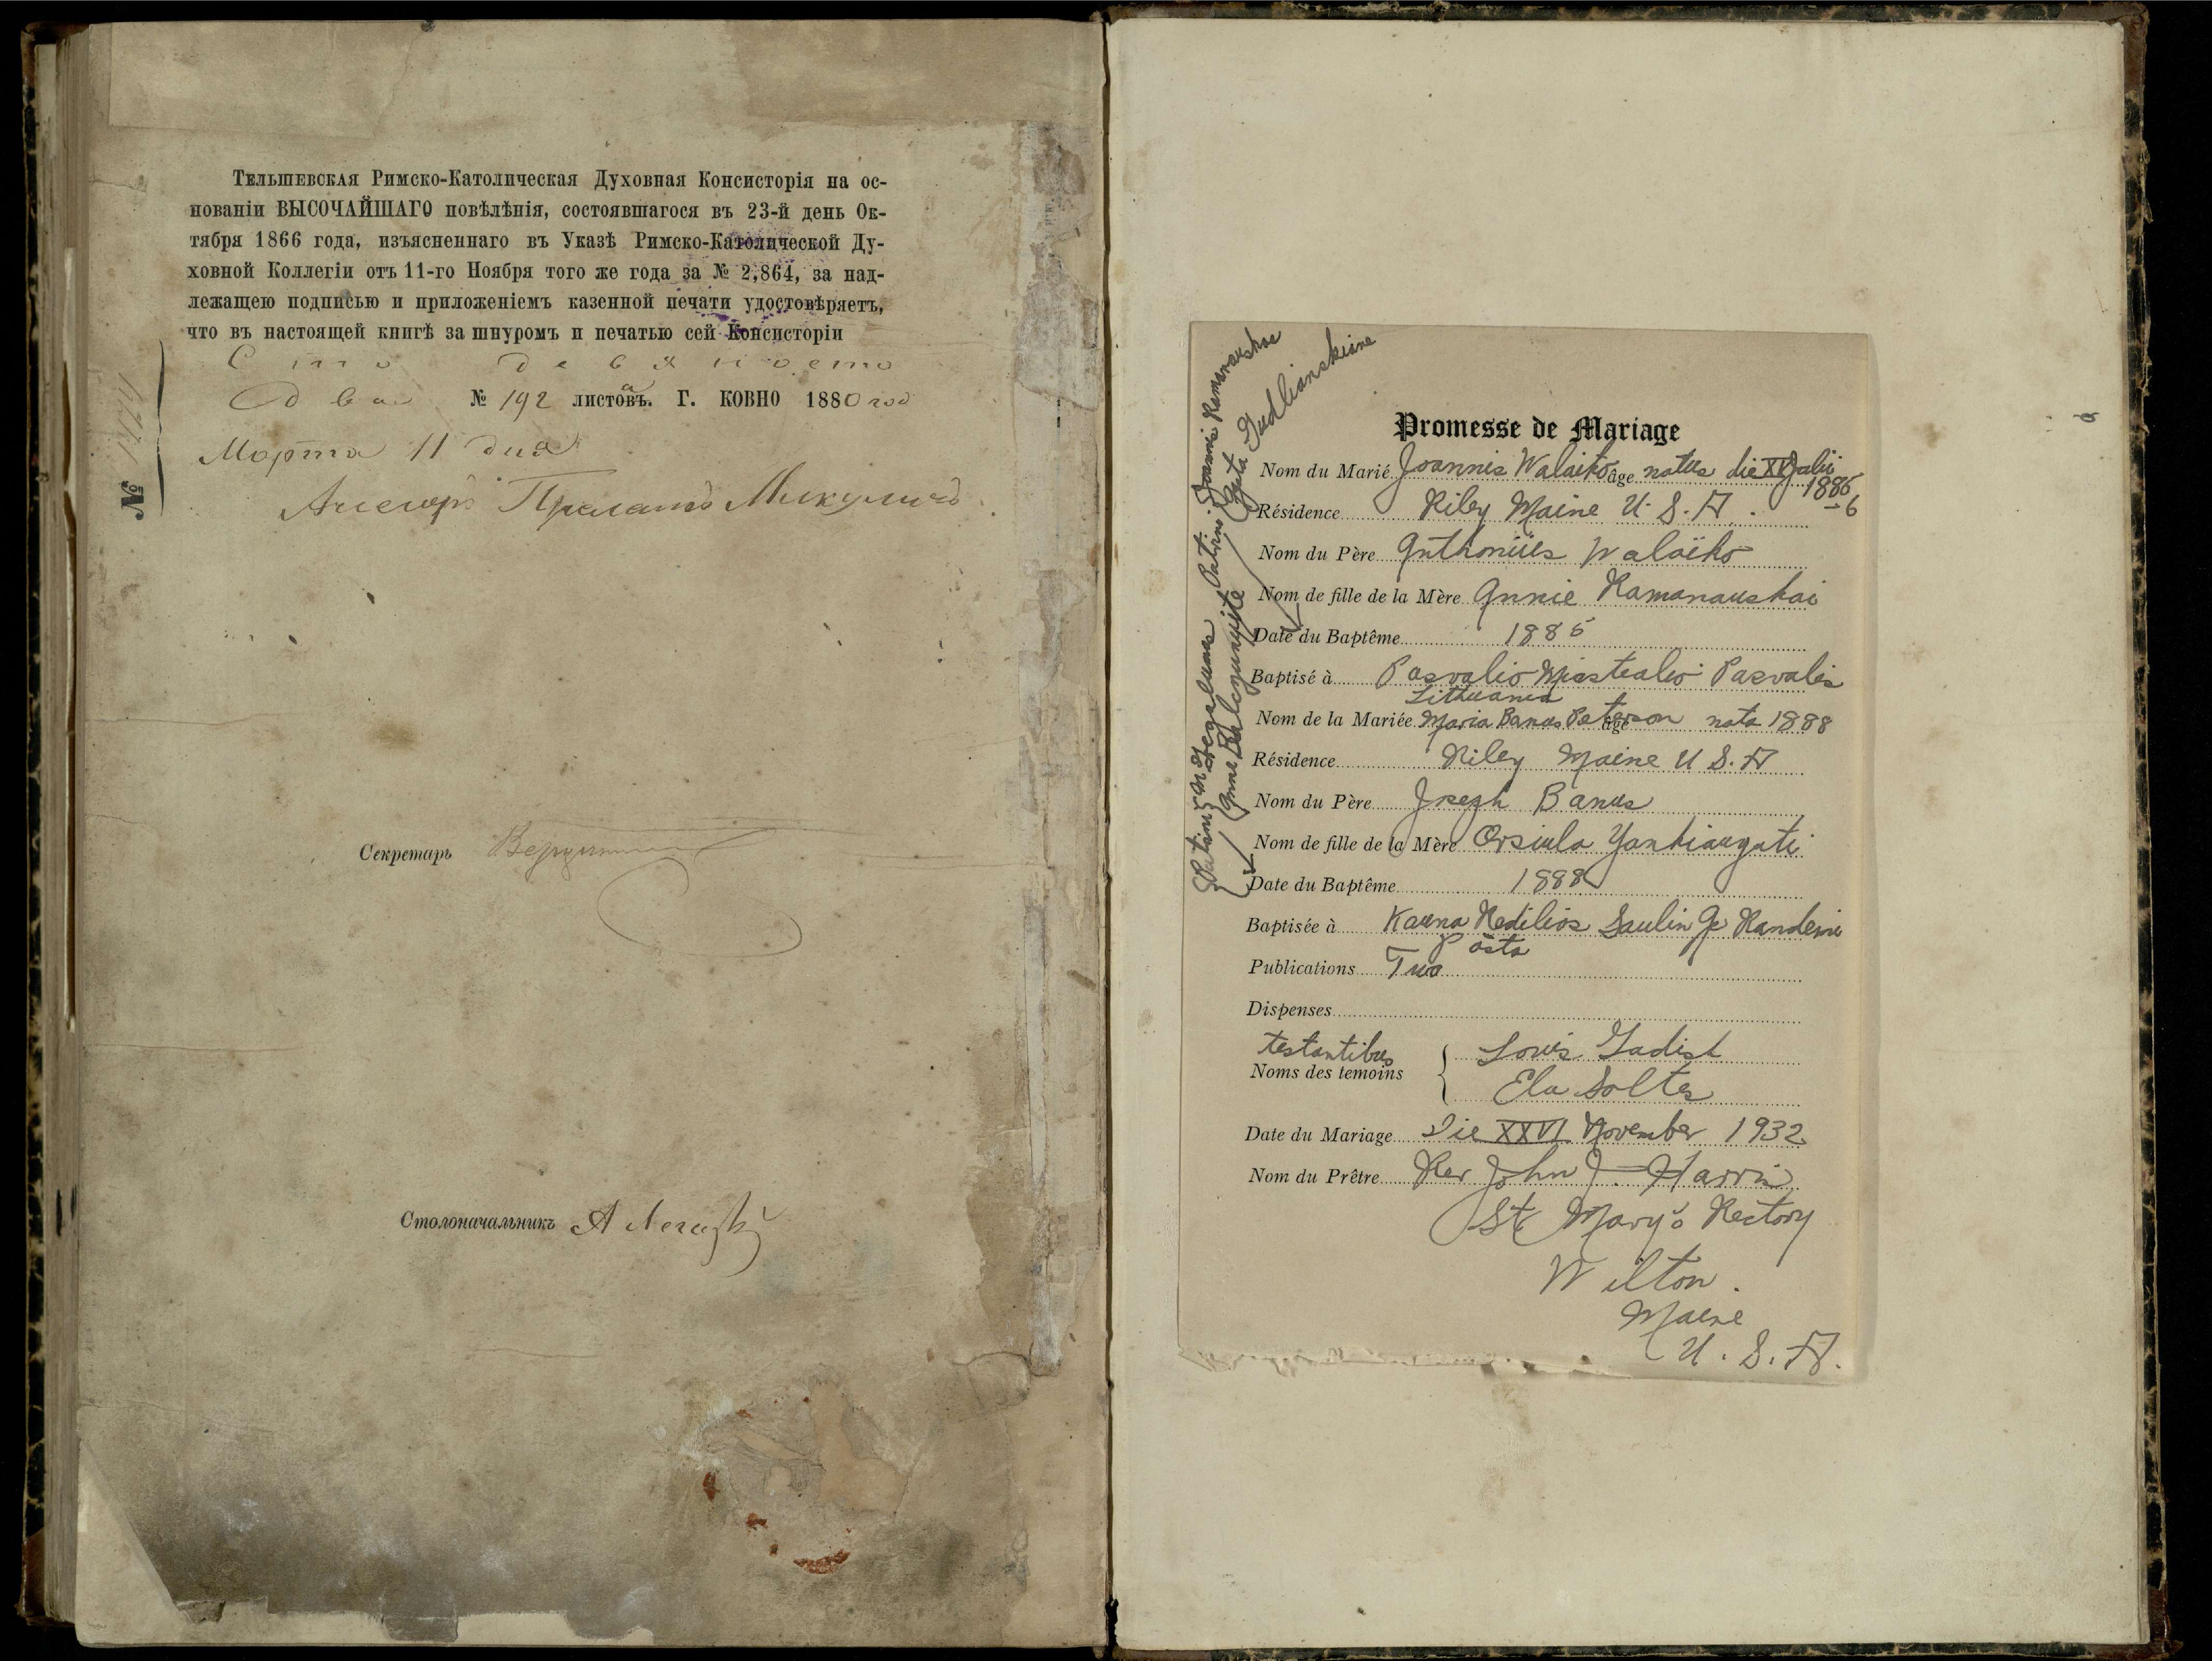 Тельшевская Римско-Католическая Духовная Консисторія на ос-
нованіи ВЫСОЧАЙШАГО повѣлѣнія, состоявшагося въ 23-й день Ок-
тября 1866 года, изъясненнаго въ Указѣ Римско-Католической Ду-
ховной Коллегіи отъ 11-го Ноября того же года за № 2,864, за над-
лежащею подписью и приложеніемъ казенной печати удостовѣряетъ,
что въ настоящей книгѣ за шнуромъ и печатью сей Консисторіи
Сто девяносто
два № 192 листовъ. Г. КОВНО 1880 год
Марта 11 дня
Прелатъ Микуличъ
№
Секретарь
Столоначальникъ А
Promesse de Mariage
Nom du Marié Joannis Walaiko âge natus die XV Julii
1885
- 6
Résidence Riley Maine U. S. A.
Nom du Père Anthonius Walaiko
Nom de fille de la Mère Annie Ramanauskai
Date du Baptême 1885
Baptisé à Pasvalio Miestealio Pasvalis
Lithuania
Nom de la Mariée Maria Banus Peterson âge nata 1888
Résidence Riley Maine U S. A
Nom du Père Joseph Banus
Nom de fille de la Mère Orsiula
Date du Baptême 1888
Baptisée à Kauna Redilios
Posta
Publications Two
Dispenses
testantibus
Noms des temoins { Louis Gadist
Ela Soltes
Date du Mariage Die XXVI November 1932
Nom du Prêtre Rev John J. Harris
St Mary's Rectory
Wilton.
Maine
U. S. A.
Patrini Joannis Ramanauskas
Gudlianskiene
Patrini
Anne